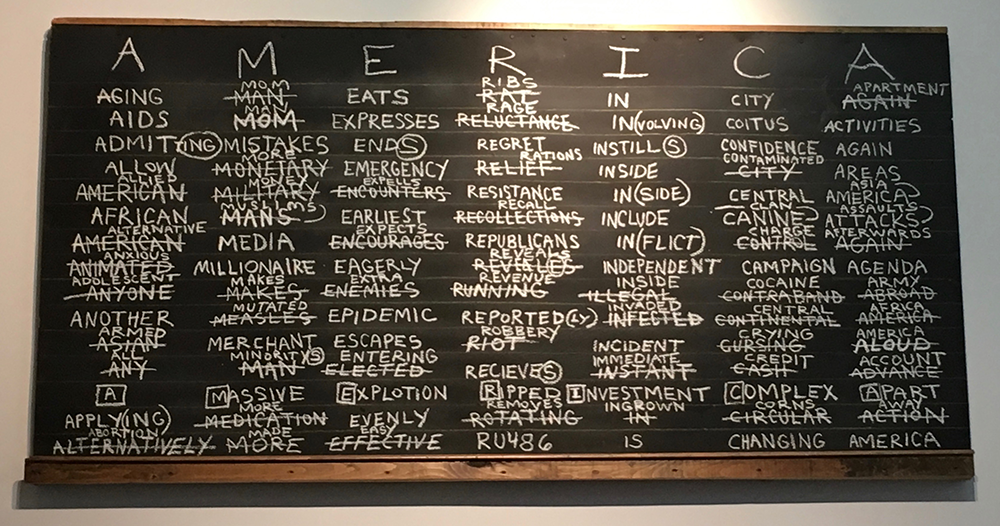 A M E R I C A
MOM RIBS APARTMENT
AGING MAN EATS RAT IN CITY AGAIN
MAN RAGE
AIDS MOM EXPRESSES RELUCTANCE IN(VOLVING) COITUS ACTIVITIES
ADMIT(ING) MISTAKES ENDS REGRET INSTILLS CONFIDENCE AGAIN
MORE RATIONS CONTAMINATED
ALLOW MONETARY EMERGENCY RELIEF INSIDE CITY AREAS
ALLIED MONEY EXPELLS ASIA
AMERICAN MILITARY ENCOUNTERS RESISTANCE IN(SIDE) CENTRAL AMERICA
MUSLIMS RECALL CLAN ASSAULTS
AFRICAN MANS EARLIEST RECOLLECTIONS INCLUDE CANINE ATTACKS
ALTERNATIVE EXPECTS CHARGE AFTERWARDS
AMERICAN MEDIA ENCOURAGES REPUBLICANS IN(FLICT) CONTROL AGAIN
ANXIOUS REVEALS
ANIMATED MILLIONAIRE EAGERLY INDEPENDENT CAMPAIGN AGENDA
ADOLESCENT MAKES EXTRA REVENUE INSIDE COCAINE ARMY
ANYONE MAKES ENEMIES RUNNING ILLEGAL CONTRABAND ABROAD
MUTATED INVADED CENTRAL AFRICA
ANOTHER MEASLES EPIDEMIC REPORTED(LY) INFECTED CONTINENTAL AMERICA
ARMED ROBBERY CRYING AMERICA
ASIAN MERCHANT ESCAPES RIOT INCIDENT CURSING ALOUD
ALL MINORITYS ENTERING IMMEDIATE CREDIT ACCOUNT
ANY MAN ELECTED RECIEVES INSTANT CASH ADVANCE
A MASSIVE EXPLOTION RIPPED INVESTMENT COMPLEX APART
MORE REMOVES INGROWN CORNS AWAY
APPLY(ING) MEDICATION EVENLY ROTATING IN CIRCULAR ACTION
ABORTION MADE EASY
ALTERNATIVELY MORE EFFECTIVE RU486 IS CHANGING AMERICA